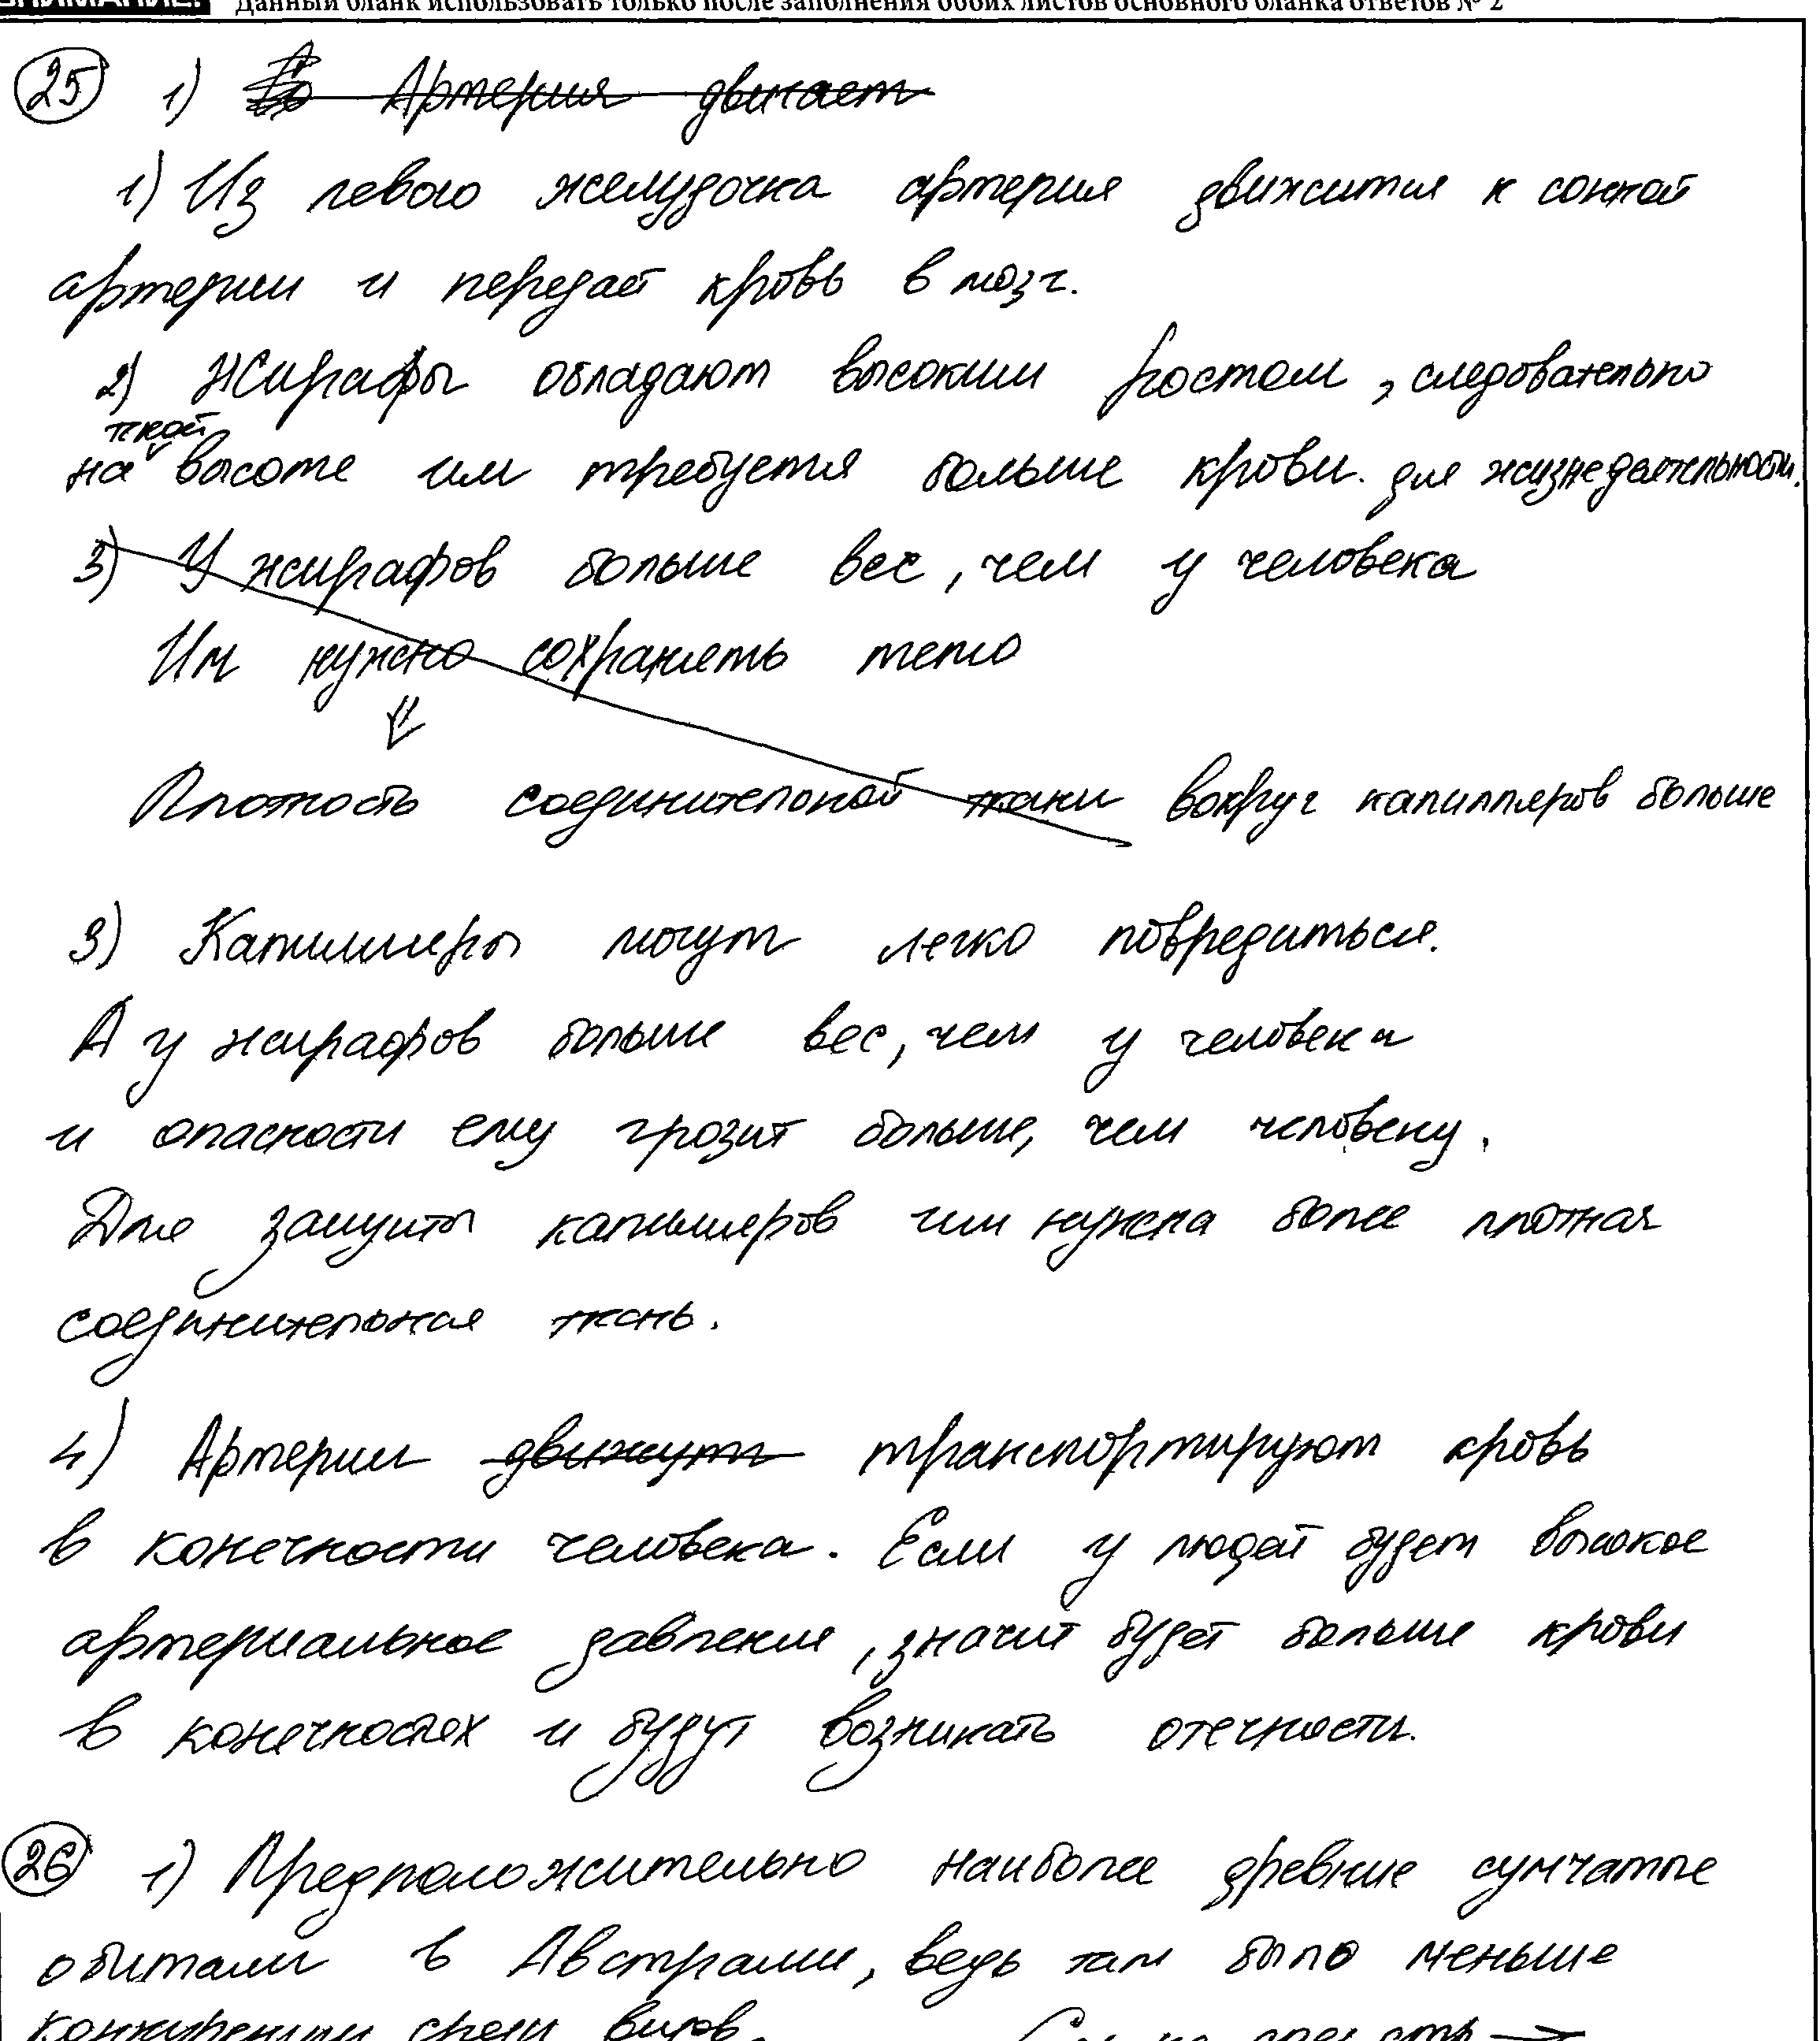 ВНИМАНИЕ! Данный бланк использовать только после заполнения обоих листов основного бланка ответов № 2
25 1) Артерия двигает
1) Из левого желудочка артерия движится к сонной
артерии и передаёт кровь в мозг.
2) Жирафы обладают высоким ростом, следовательно
такой
на высоте им требуется больше крови. для жизнедеятельности.
3) У жирафов больше вес, чем у человека
Им нужно сохранять тело
⇓
Плотность соединительной ткани вокруг капилляров больше
3) Капилляры могут легко повредиться.
А у жирафов больше вес, чем у человека
и опасности ему грозит больше, чем человеку.
Для защиты капилляров им нужна более плотная
соединительная ткань.
4) Артерии движут транспортируют кровь
в конечности человека. Если у людей будет высокое
артериальное давление, значит будет больше крови
в конечностях и будут возникать отечности.
26 1) Предположительно наиболее древние сумчатые
обитали в Австралии, ведь там было меньше
конкуренции среди видов.